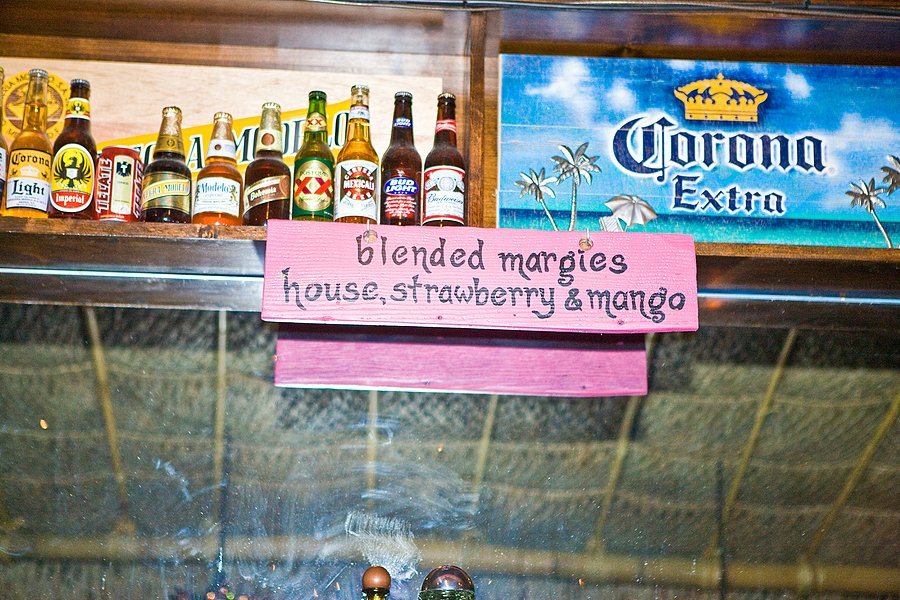 Corona
Extra
blended margies
house, strawberry & mango
Corona
Light
Imperial
TECATE
Modelo
Bohemia
XX
MEXICALI
BUD
LIGHT
Budweiser